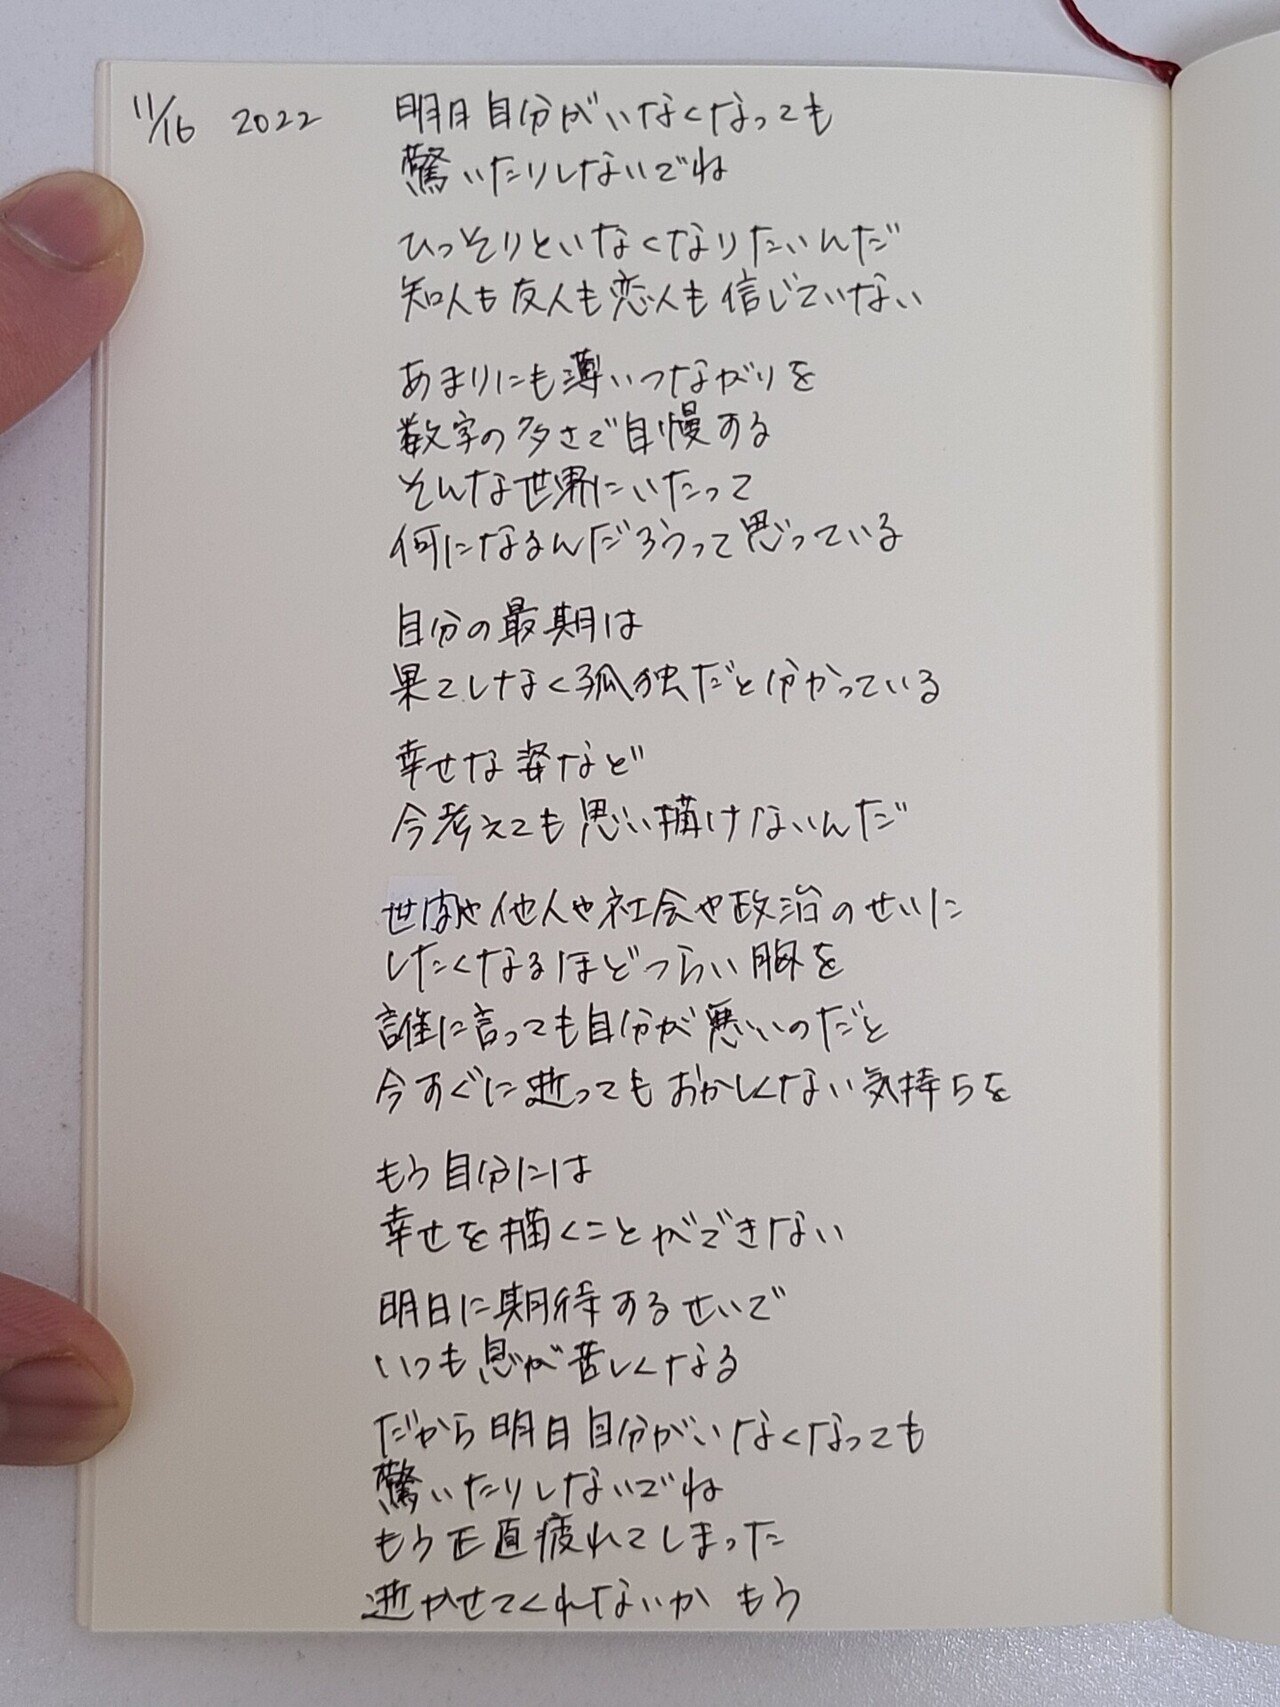 11/16 2022
明日自分がいなくなっても
驚いたりしないでね
ひっそりといなくなりたいんだ
知人も友人も恋人も信じていない
あまりにも薄いつながりを
数字の多さで自慢する
そんな世界にいたって
何になるんだろうって思っている
自分の最期は
果てしなく孤独だと分かっている
幸せな姿など
今考えても思い描けないんだ
世間や他人や社会や政治のせいに
したくなるほどつらい胸を
誰に言っても自分が悪いのだと
今すぐに逝ってもおかしくない気持ちを
もう自分には
幸せを描くことができない
明日に期待するせいで
いつも息が苦しくなる
だから明日自分がいなくなっても
驚いたりしないでね
もう正直疲れてしまった
逝かせてくれないか もう